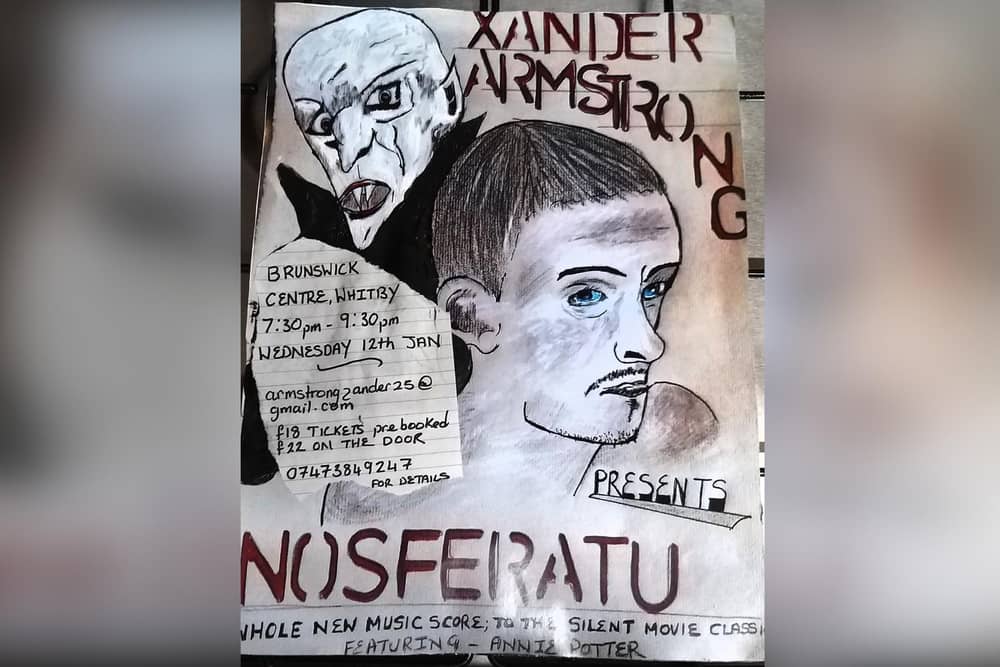 XANDER
ARMSTRONG
BRUNSWICK
CENTRE, WHITBY
7:30pm - 9:30pm
WEDNESDAY 12th JAN
armstrongzander25@
gmail.com
£18 TICKETS prebooked
£22 ON THE DOOR
07473849247
FOR DETAILS
PRESENTS
NOSFERATU
WHOLE NEW MUSIC SCORE; TO THE SILENT MOVIE CLASSI
FEATURING - ANNIE POTTER